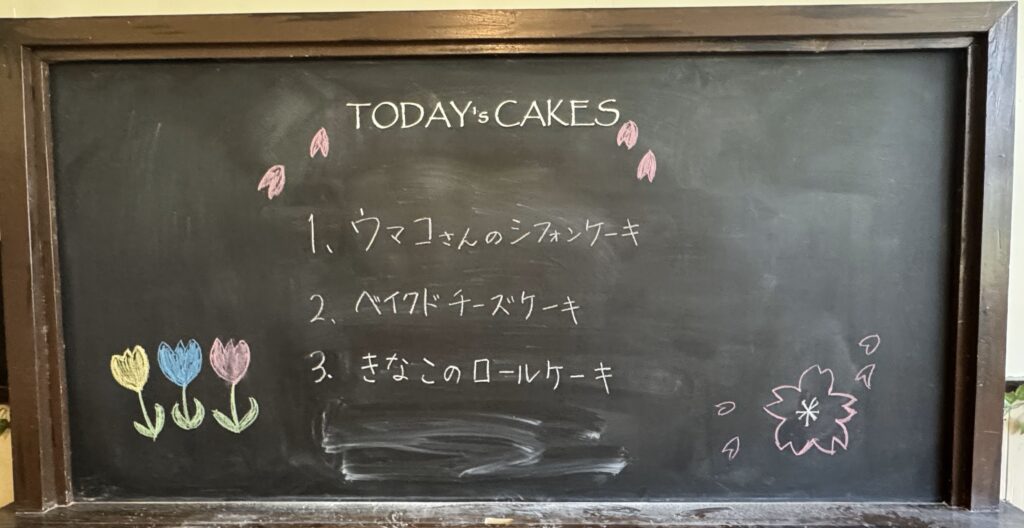 TODAY's CAKES
1、ウマコさんのシフォンケーキ
2、ベイクドチーズケーキ
3、きなこのロールケーキ